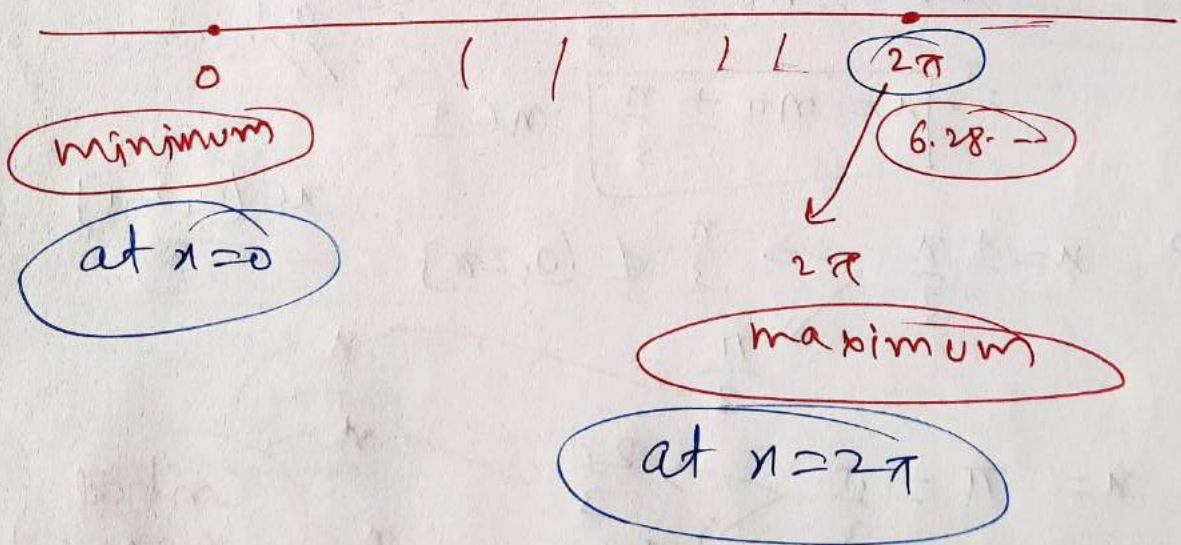 0 2π
minimum 6.28. --
at x=0 2π
maximum
at x=2π